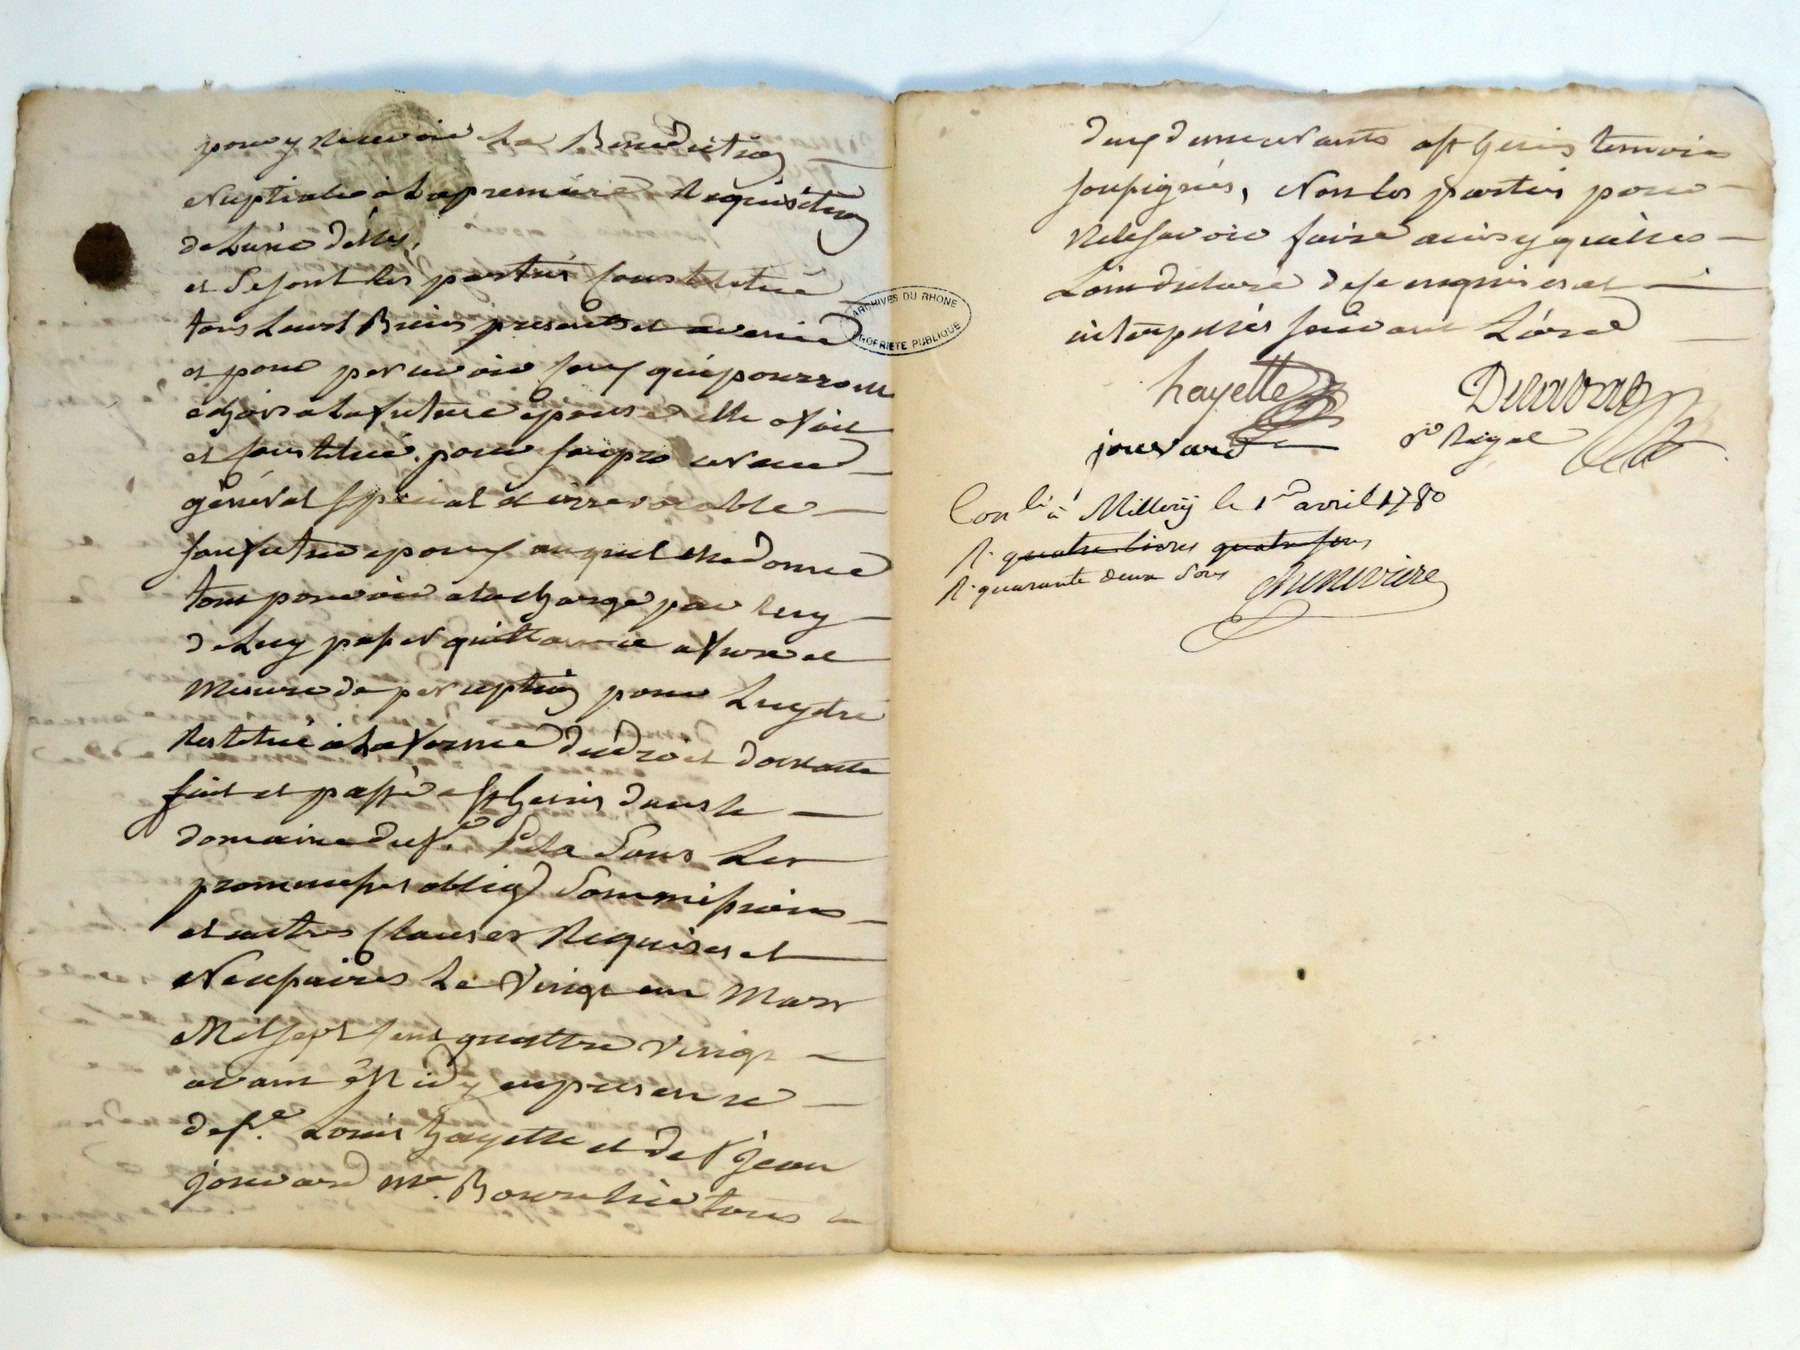 pour y recevoir la Benediction
Nuptiale a la premiere Requisition
de L'une d'elles,
et se sont les parties Constitué
tous Leurs Biens presents et avenir
et pour percevoir Ceux qui pourront
echoir a la future epouse elle a fait
et Constitué pour son procureur
général Special et irrevocable
son futur epoux auquel elle donne
tout pouvoir a la charge par luy
de Luy passer quittance a fure et
Mesure de perception pour Luy etre
Restitué a la forme du droit
fait et passé a St Genis dans le
domaine du sr. Sous Les
promesses oblig. Soumissions
et autres Clauses Requises et
Necessaires Le Vingt un Mars
Mil sept Cent quattre Vingt
avant Midy en presence
de sr. Louis hayette et de sr jean
jouvard md. Boucher tous
deux demeurants a St Genis temoins
soussignés, Non les parties pour
ne le savoir faire ainsy qu'elles
L'ont declaré de ce enquises et
interpellés suivant L'ord
ARCHIVES DU RHONE
PROPRIETE PUBLIQUE
hayette
jouvard
Con.lé à Millery le 1er avril 1780
R. quatre livres quatre sous
R. quarante deux sous